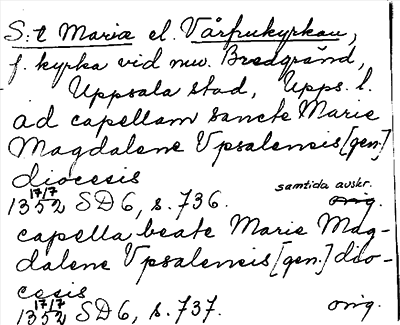 S:t Mariæ el. Vårfrukyrkan,
f. kyrka vid nuv. Bredgränd,
Uppsala stad, Upps. l.
ad capellam sancte Marie
Magdalene Vpsalensis [gen.]
diocesis
samtida avskr.
17/7 1352 SD 6, s. 736. orig.
capella beate Marie Mag-
dalene Vpsalensis [gen.] dio-
cesis
17/7 1352 SD 6, s. 737. orig.